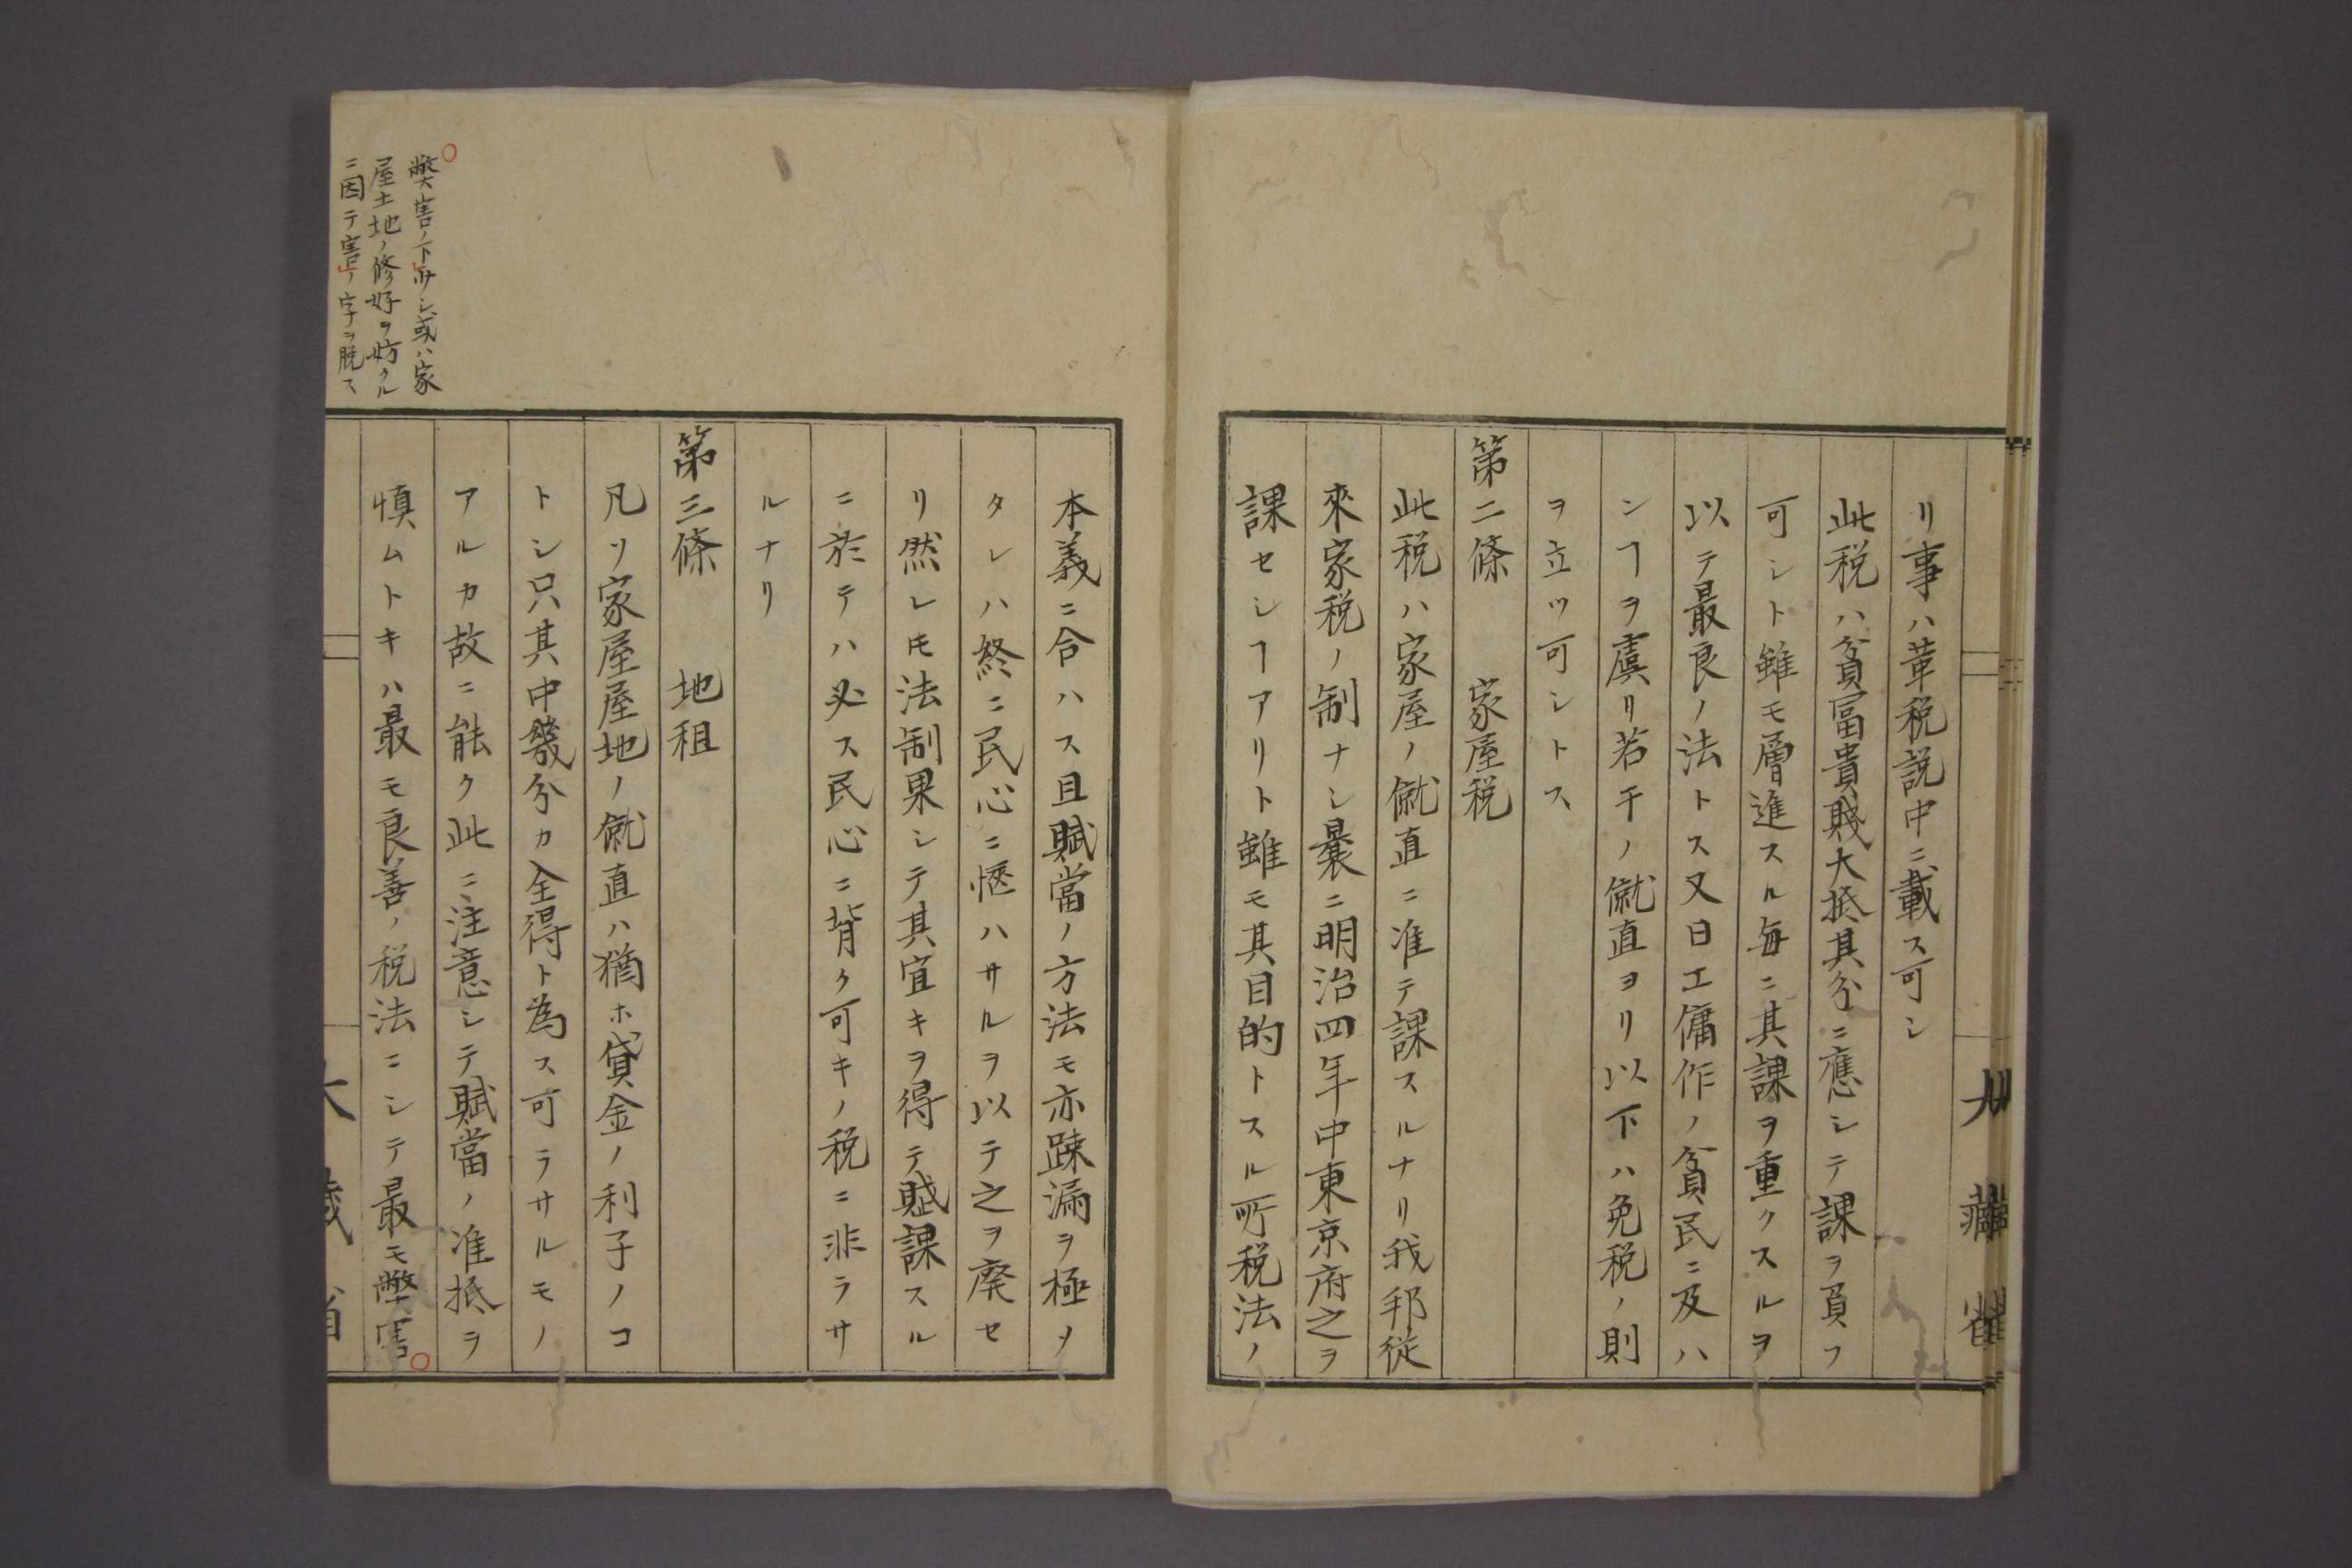 リ事ハ革税説中ニ載ス可シ
此税ハ貧冨貴賤大抵其分ニ應シテ課ヲ負フ
可シト雖モ層進スル毎ニ其課ヲ重クスルヲ
以テ最良ノ法トス又日工傭作ノ貧民ニ及ハ
ンヿヲ虞リ若干ノ僦直ヨリ以下ハ免税ノ則
ヲ立ツ可シトス
第二條 家屋税
此税ハ家屋ノ僦直ニ准テ課スルナリ我邦従
來家税ノ制ナシ曩ニ明治四年中東京府之ヲ
課セシヿアリト雖モ其目的トスル所税法ノ
本義ニ合ハス且賦當ノ方法モ亦踈漏ヲ極メ
タレハ終ニ民心ニ愜ハサルヲ以テ之ヲ廃セ
リ然レ𪜈法制果シテ其宜キヲ得テ賦課スル
ニ於テハ必ス民心ニ背ク可キノ税ニ非ラサ
ルナリ
第三條 地租
凡ソ家屋屋地ノ僦直ハ猶ホ貸金ノ利子ノコ
トシ只其中幾分カ全得ト為ス可ラサルモノ
アルカ故ニ能ク此ニ注意シテ賦當ノ准抵ヲ
慎ムトキハ最モ良善ノ税法ニシテ最モ弊害
弊害ノ下少シ或ハ家
屋土地ノ修好ヲ妨クル
ニ因テ害ノ字ヲ脱ス
大蔵省